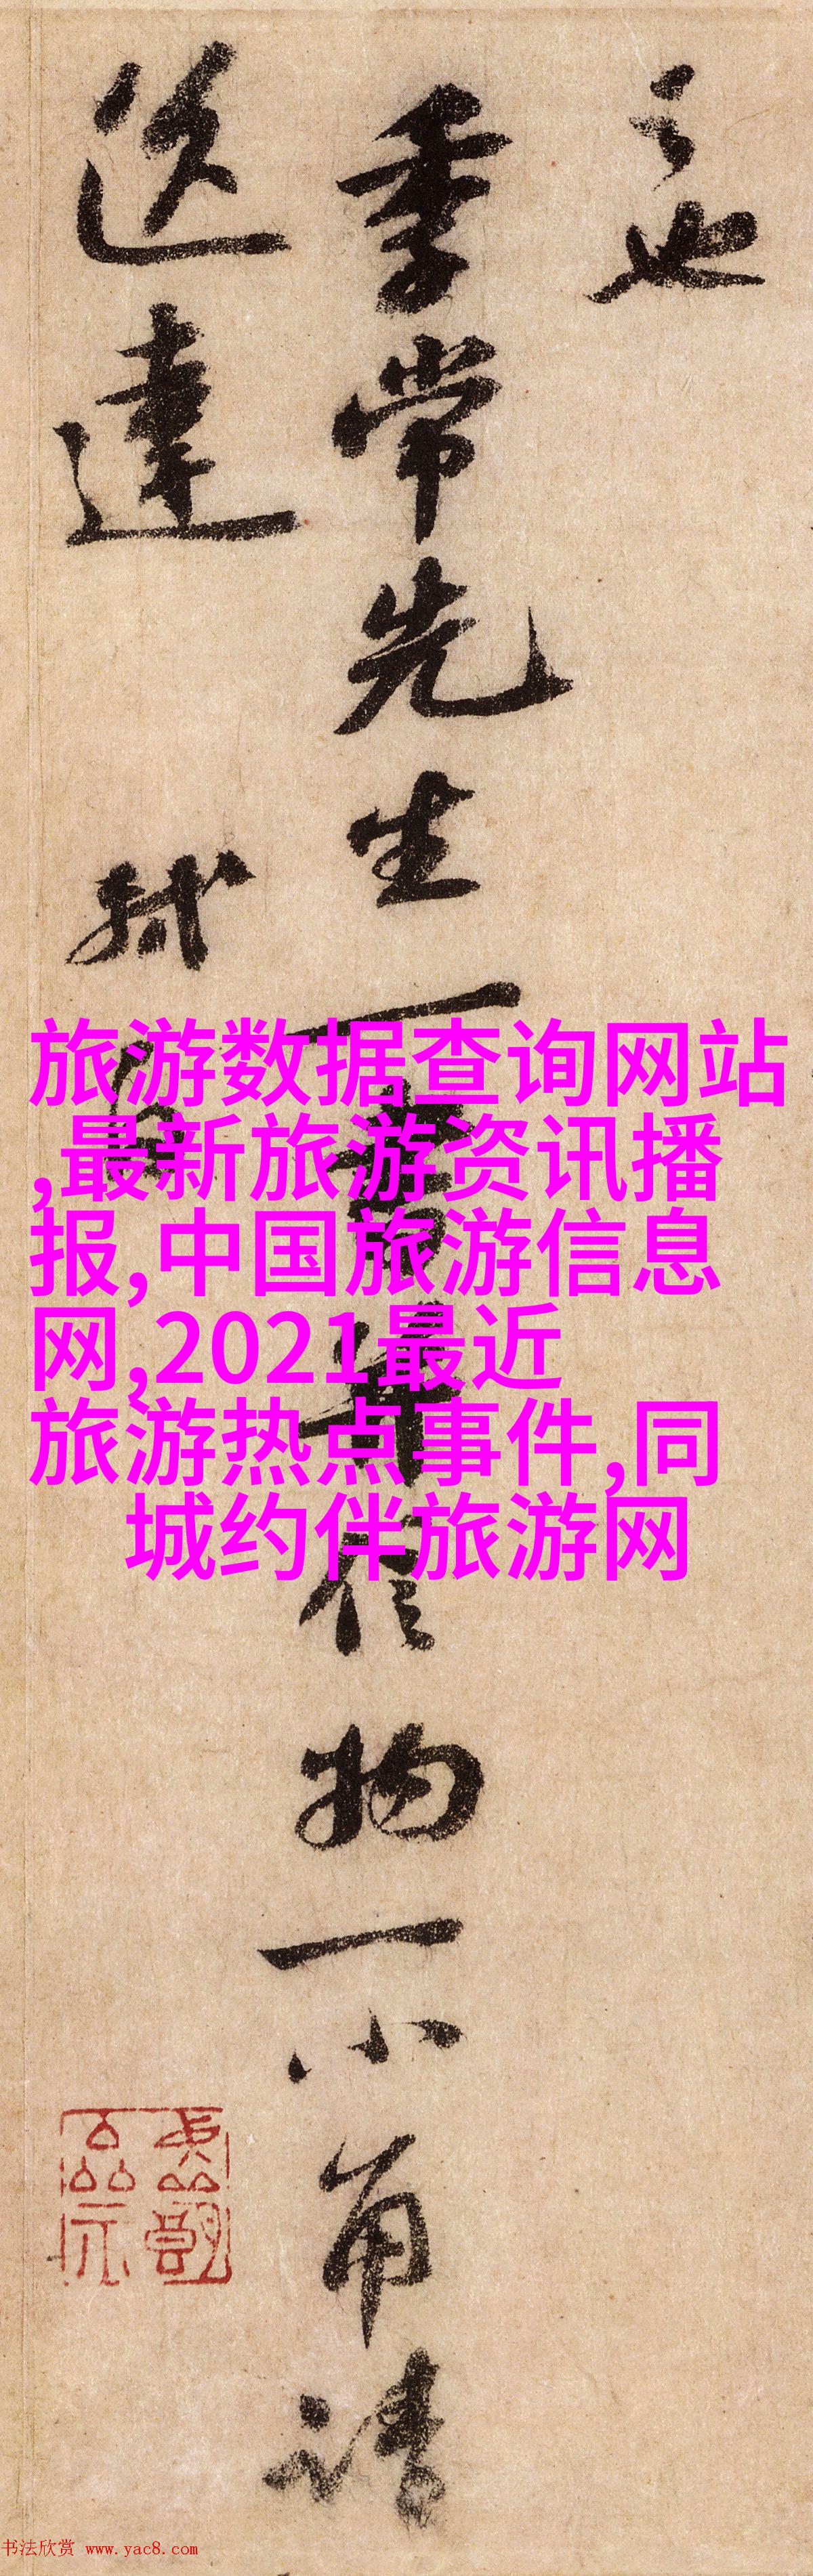 之也
季常先生一書并信物一小角請
送達 軾白
旅游数据查询网站
,最新旅游资讯播
报,中国旅游信息
网,2021最近
旅游热点事件,同
城约伴旅游网
书法欣赏 www.yac8.com